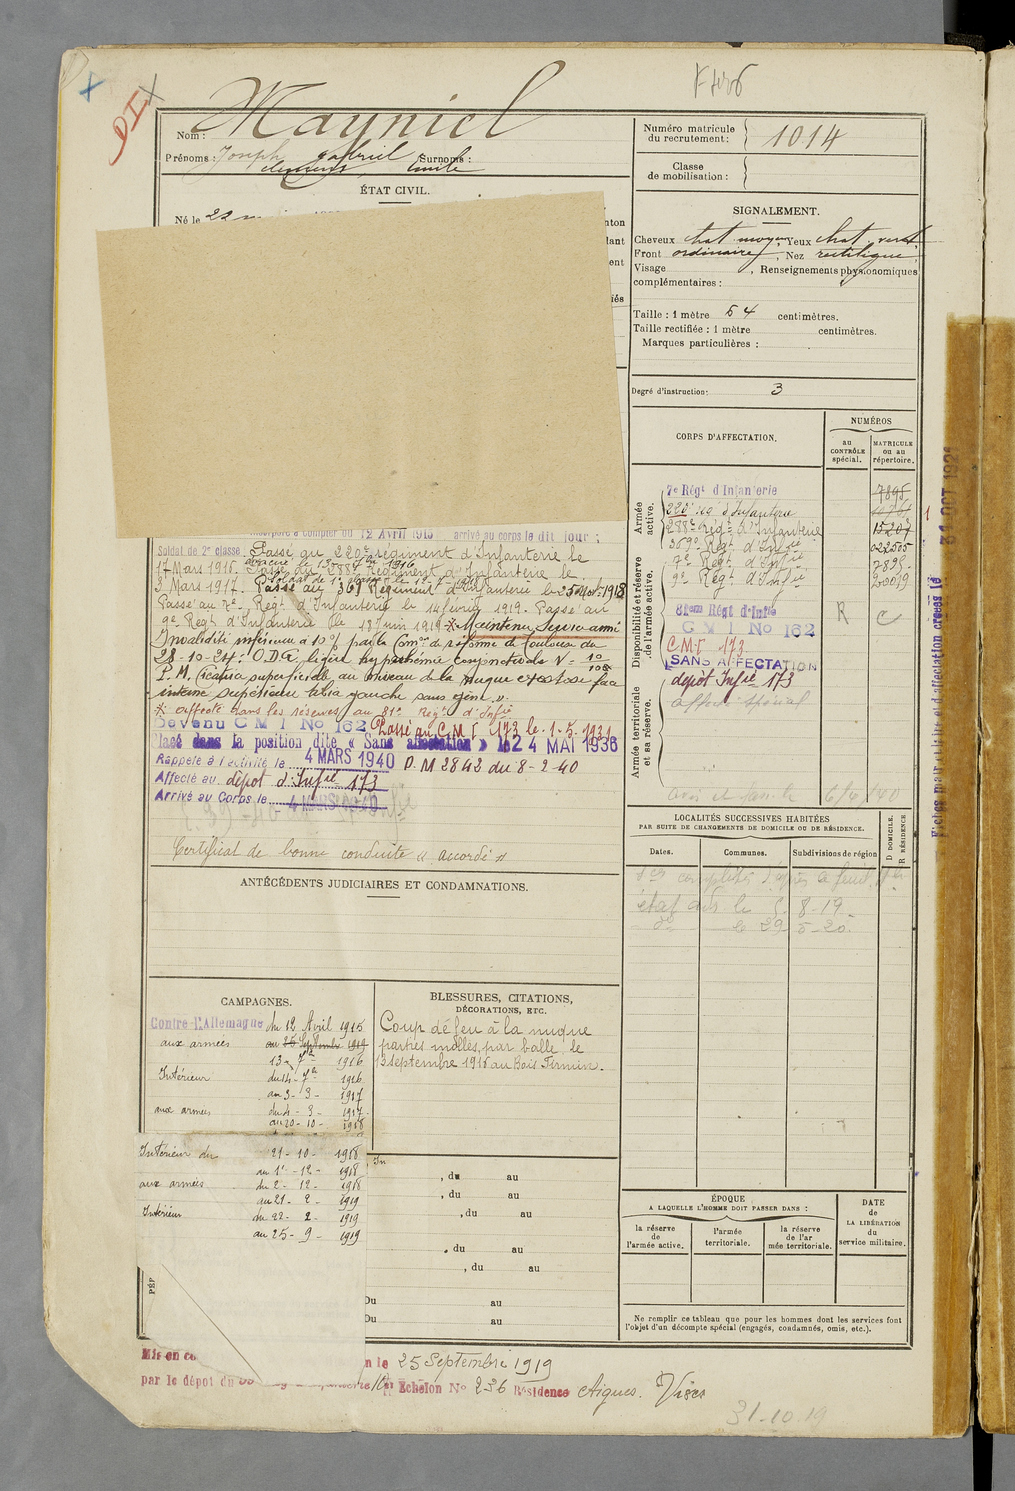 DI
Nom : Mayniel
Prénoms : Joseph gabriel Surnoms :
clement Emile
ÉTAT CIVIL.
Né le 22
Numéro matricule
du recrutement : 1014
Classe
de mobilisation :
SIGNALEMENT.
Cheveux chat moyen, Yeux chat. verd.
Front ordinaire, Nez rectiligne
Visage , Renseignements physionomiques
complémentaires :
Taille : 1 mètre 54 centimètres.
Taille rectifiée : 1 mètre centimètres.
Marques particulières :
Degré d'instruction : 3
CORPS D'AFFECTATION.
NUMÉROS
au
CONTRÔLE
spécial.
MATRICULE
ou au
répertoire.
Armée
active.
Disponibilité et réserve
de l'armée active.
Armée territoriale
et sa réserve.
7e Régt d'Infanterie 7895
220e rég d'Infanterie
288e Régt d'Infanterie 15207
369e Régt d'Infie 022505
7e Régt d'Infie 7895
9e Régt d'Infie 20019
81em Régt d'Infie R C
C M I No 162
C.M.I. 173
SANS AFFECTATION
dépôt Infie 173
affecté spécial
6/4/40
Fiches matriculaire et d'affectation créées le 31 OCT 1921
Incorporé à compter du 12 Avril 1915 arrivé au corps le dit jour ;
Soldat de 2e classe. Passé au 220e régiment d'Infanterie le
évacué le 13 7bre 1916
17 Mars 1916. Passé au 288e Régiment d'Infanterie le
Soldat de 1e classe le 12-7-1918
3 Mars 1917. Passé au 369 Régiment d'Infanterie le 25 Nov. 1918
Passé au 7e Régt d'Infanterie le 14 février 1919. Passé au
9e Régt d'Infanterie le 18 Juin 1919 * Maintenu Service armé
Invalidité inférieure à 10% par la Comon de réforme de Toulouse du
28-10-24 : O.D.G. légère hyperhémie conjonctivale V = 10/10
P.M. Cicatrice superficielle au niveau de la nuque exostose face
interne supérieure tibia gauche sans gêne ».
* affecté dans les réserves au 81e Régt d'Infie
Devenu C M I No 162 Passé au C.M.I. 173 le 1.5.1931
Placé dans la position dite « Sans affectation » le 24 MAI 1936
Rappelé à l'activité le 4 MARS 1940 D.M 2842 du 8-2-40
Affecté au dépôt d'Infie 173
Arrivé au Corps le 4 MARS 1940
Certificat de bonne conduite « accordé »
ANTÉCÉDENTS JUDICIAIRES ET CONDAMNATIONS.
LOCALITÉS SUCCESSIVES HABITÉES
PAR SUITE DE CHANGEMENTS DE DOMICILE OU DE RÉSIDENCE.
D DOMICILE.
R RÉSIDENCE
Dates. Communes. Subdivisions de région
8-19
29-5-20
CAMPAGNES.
Contre l'Allemagne du 12 Avril 1915
aux armées au 25 Septembre 1919
13 7bre 1916
Intérieur du 14 7bre 1916
au 3 - 3 - 1917
aux armées du 4 - 3 - 1917
au 20 - 10 - 1918
Intérieur du 21 - 10 - 1918
au 1er - 12 - 1918
aux armées du 2 - 12 - 1918
au 21 - 2 - 1919
Intérieur du 22 - 2 - 1919
au 25 - 9 - 1919
BLESSURES, CITATIONS,
DÉCORATIONS, ETC.
Coup de feu à la nuque
parties molles, par balle le
13 septembre 1916 au Bois Firmin.
In
, du au
, du au
, du au
, du au
, du au
Du au
Du au
PÉR
ÉPOQUE
A LAQUELLE L'HOMME DOIT PASSER DANS :
la réserve
de
l'armée active.
l'armée
territoriale.
la réserve
de l'ar
mée territoriale.
DATE
de
LA LIBÉRATION
du
service militaire.
Ne remplir ce tableau que pour les hommes dont les services font
l'objet d'un décompte spécial (engagés, condamnés, omis, etc.).
Mis en co n le 25 Septembre 1919
par le dépôt du Echelon No 236 Résidence Aigues. Vives
31-10-19